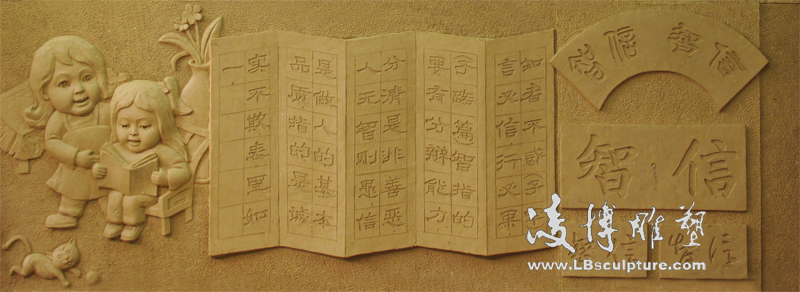 知者不惑子
言必信行必果
子路篇智指的
要有分辨能力
分清是非善恶
人无智则愚信
是做人的基本
品质指的是诚
实不欺表里如
一
智信智信
智信
智信
凌博雕塑
www.LBsculpture.com